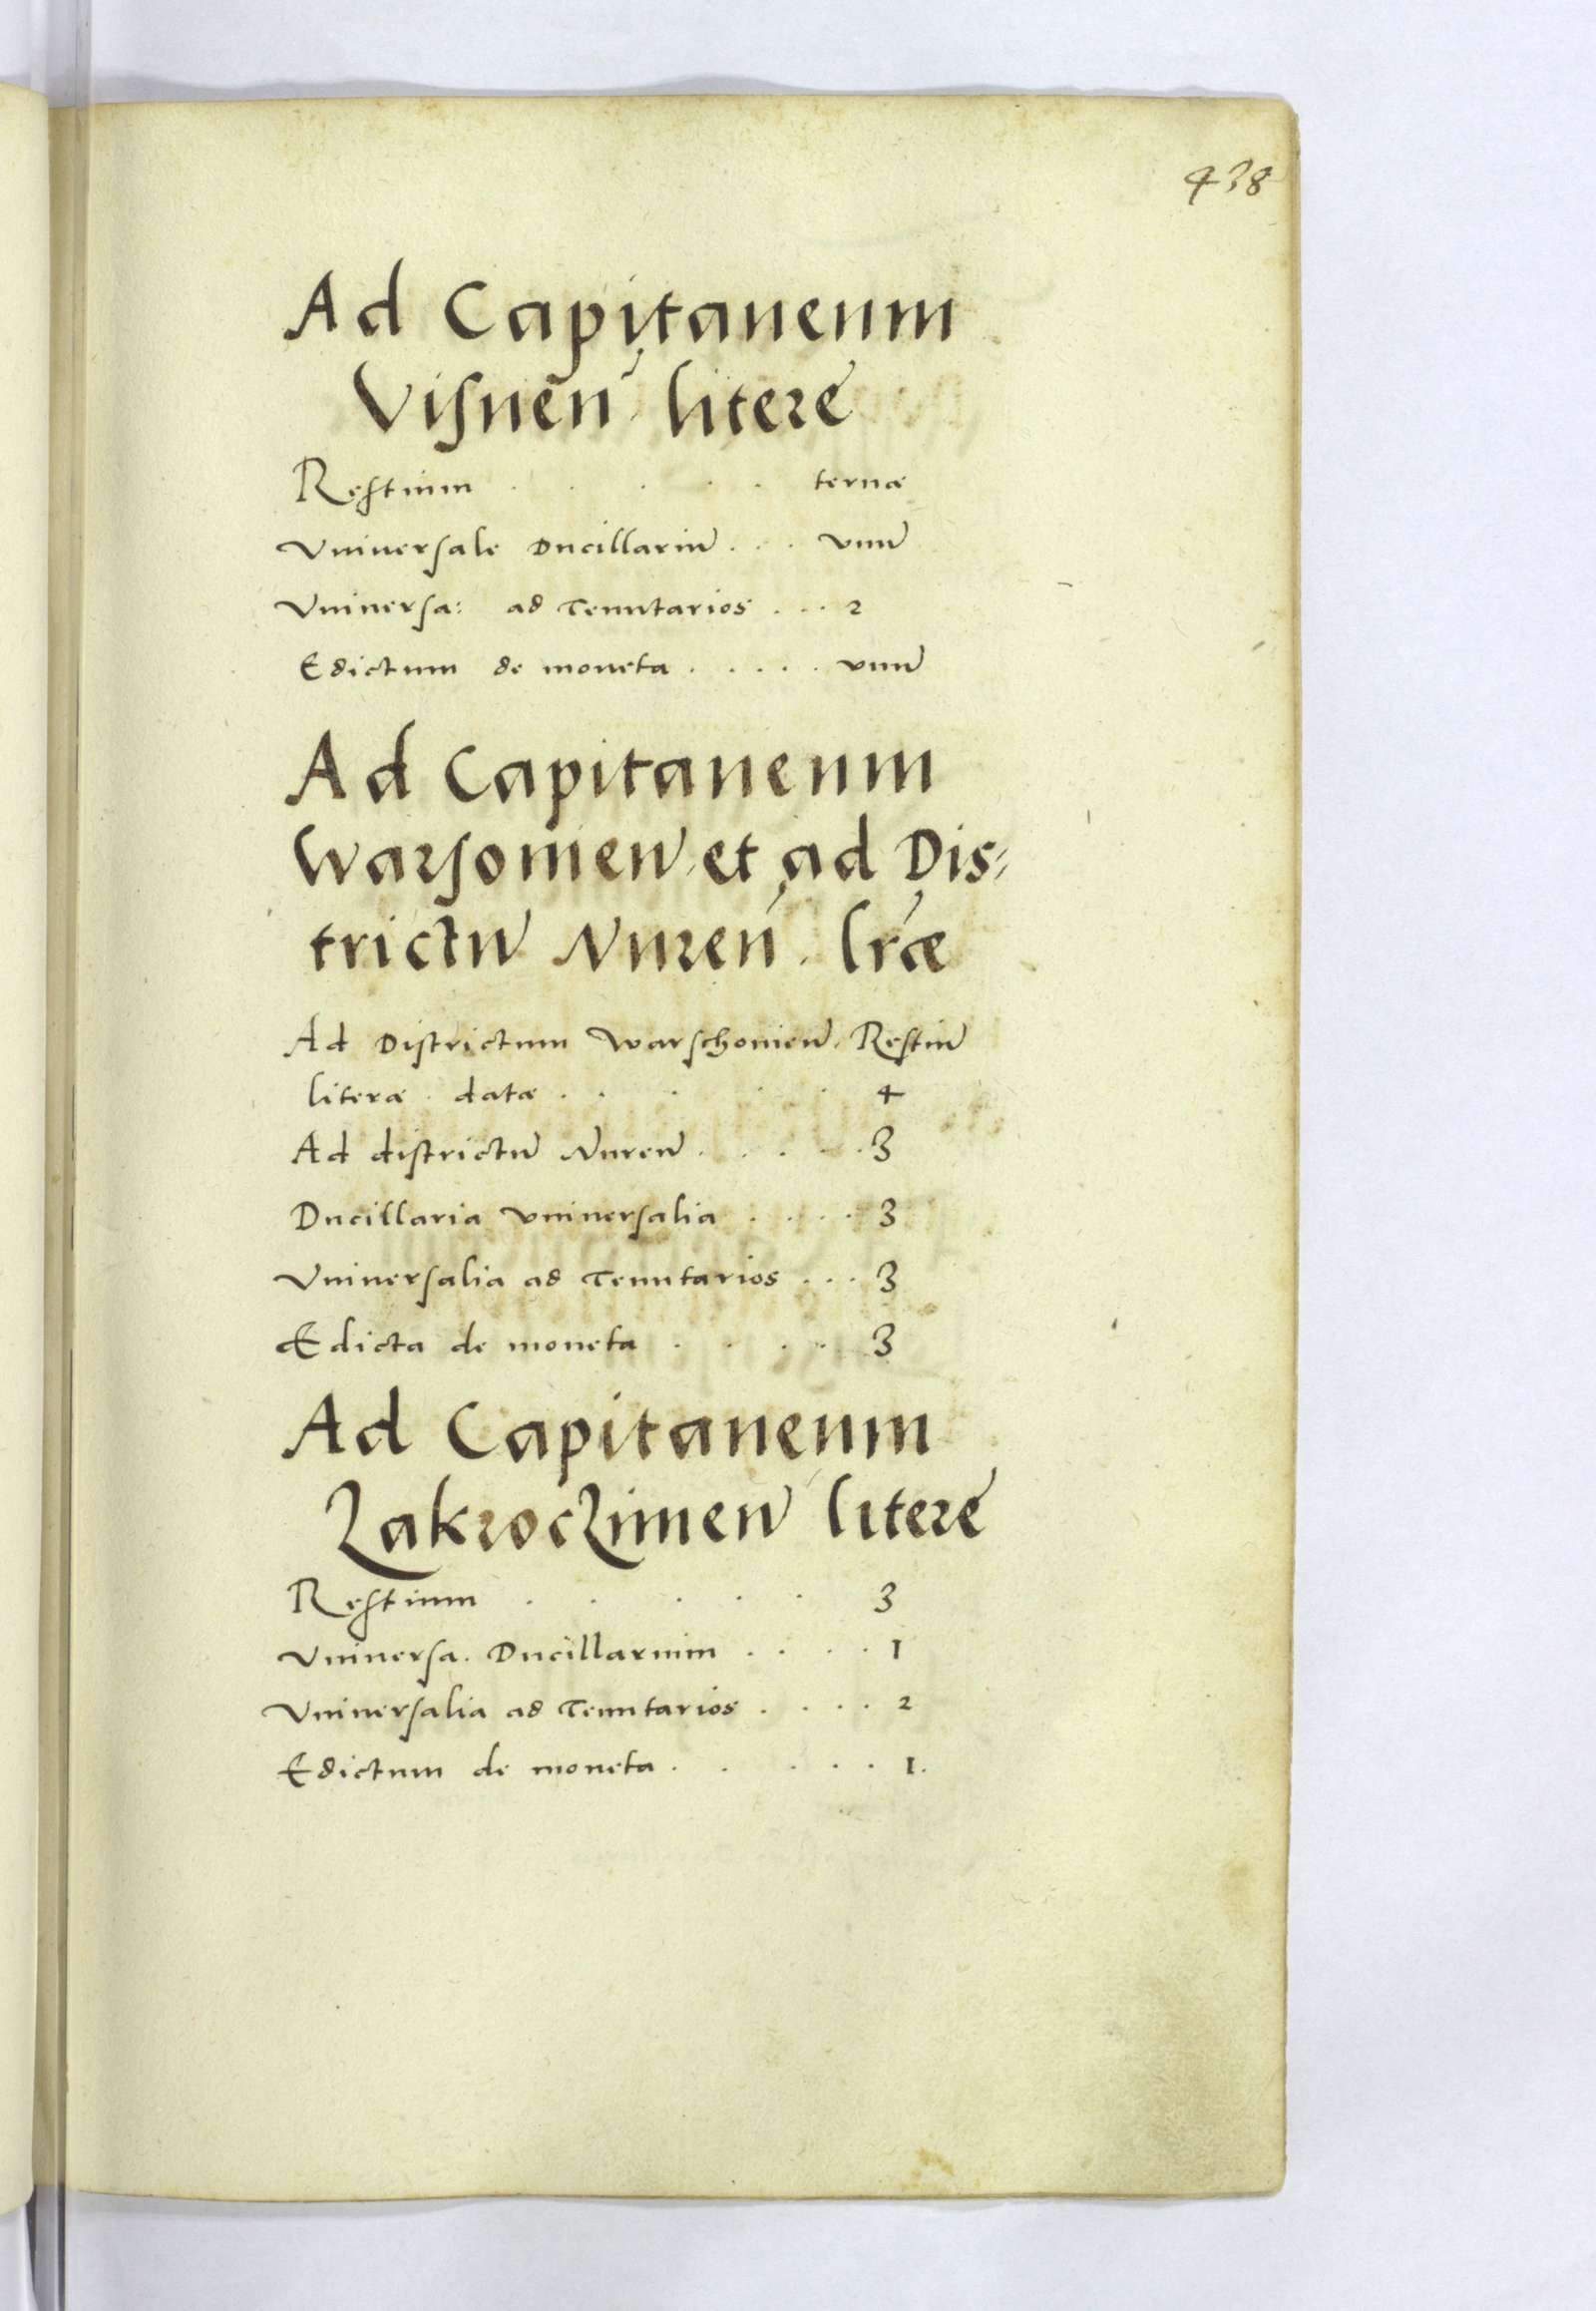 438
Ad Capitaneum
Visnen̄ litere
Restium . . . . . ternæ
Vniuersale Ducillariū . . . vnū
Vniuersa: ad Tenutarios . . . 2
Edictum de moneta . . . . . vnū
Ad Capitaneum
Warsouien̄ et ad Dis⸗
trictū Nuren̄. lr̄æ
Ad Districtum Warschouien̄. Restiū
literæ datæ . . . . . 4
Ad districtū Nuren̄ . . . . . 3
Ducillaria vniuersalia . . . . 3
Vniuersalia ad Tenutarios . . . 3
Edicta de moneta . . . . 3
Ad Capitaneum
Zakroczimen̄ litere
Restium . . . . . 3
Vniuersa. Ducillarium . . . . 1
Vniuersalia ad Tenutarios . . . . 2
Edictum de moneta . . . . . 1.